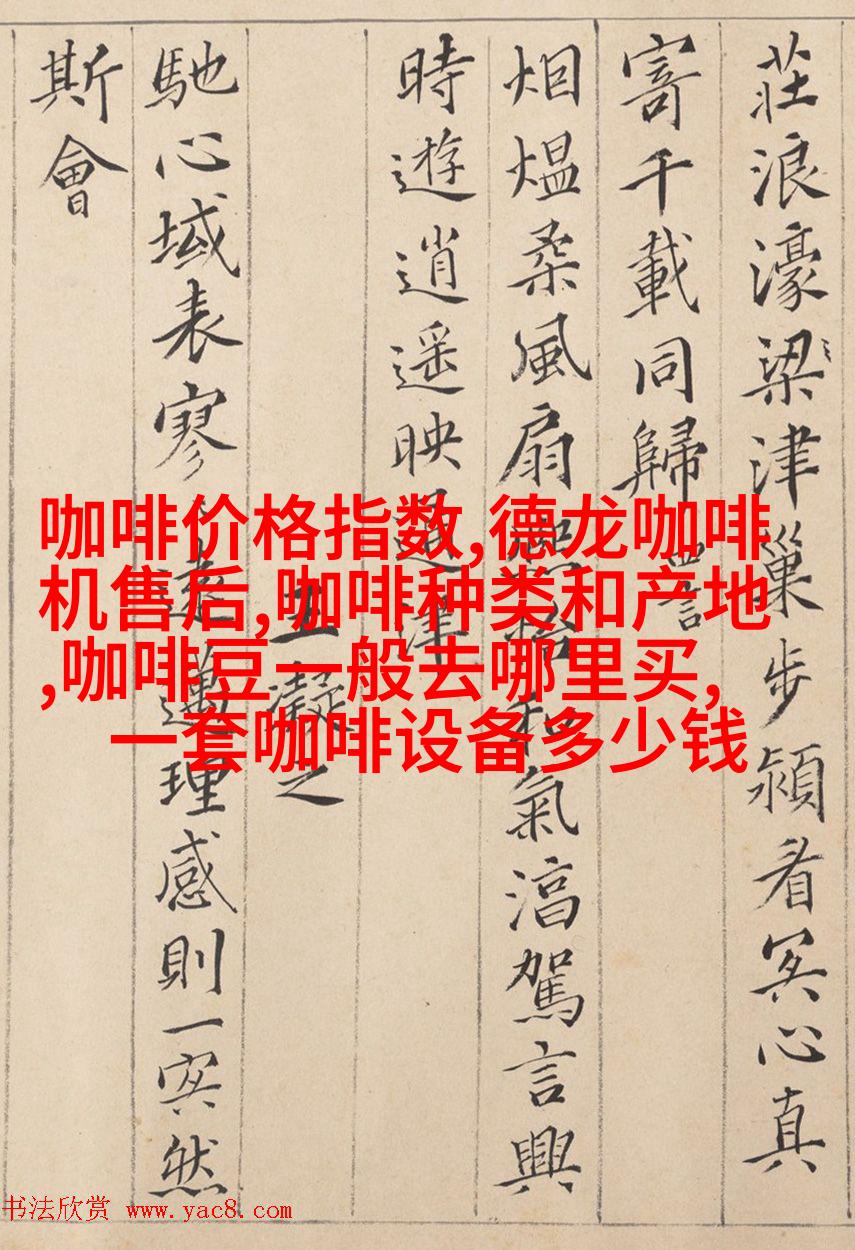 莊浪濠梁津巢步潁冥心真
寄千載同歸 四言
烟熅柔風扇熙怡和氣淳駕言興
時遊逍遥映通津
王凝之
馳心域表寥々遠邁理感則一冥然
斯會
咖啡价格指数,德龙咖啡
机售后,咖啡种类和产地
,咖啡豆一般去哪里买,
一套咖啡设备多少钱
书法欣赏 www.yac8.com